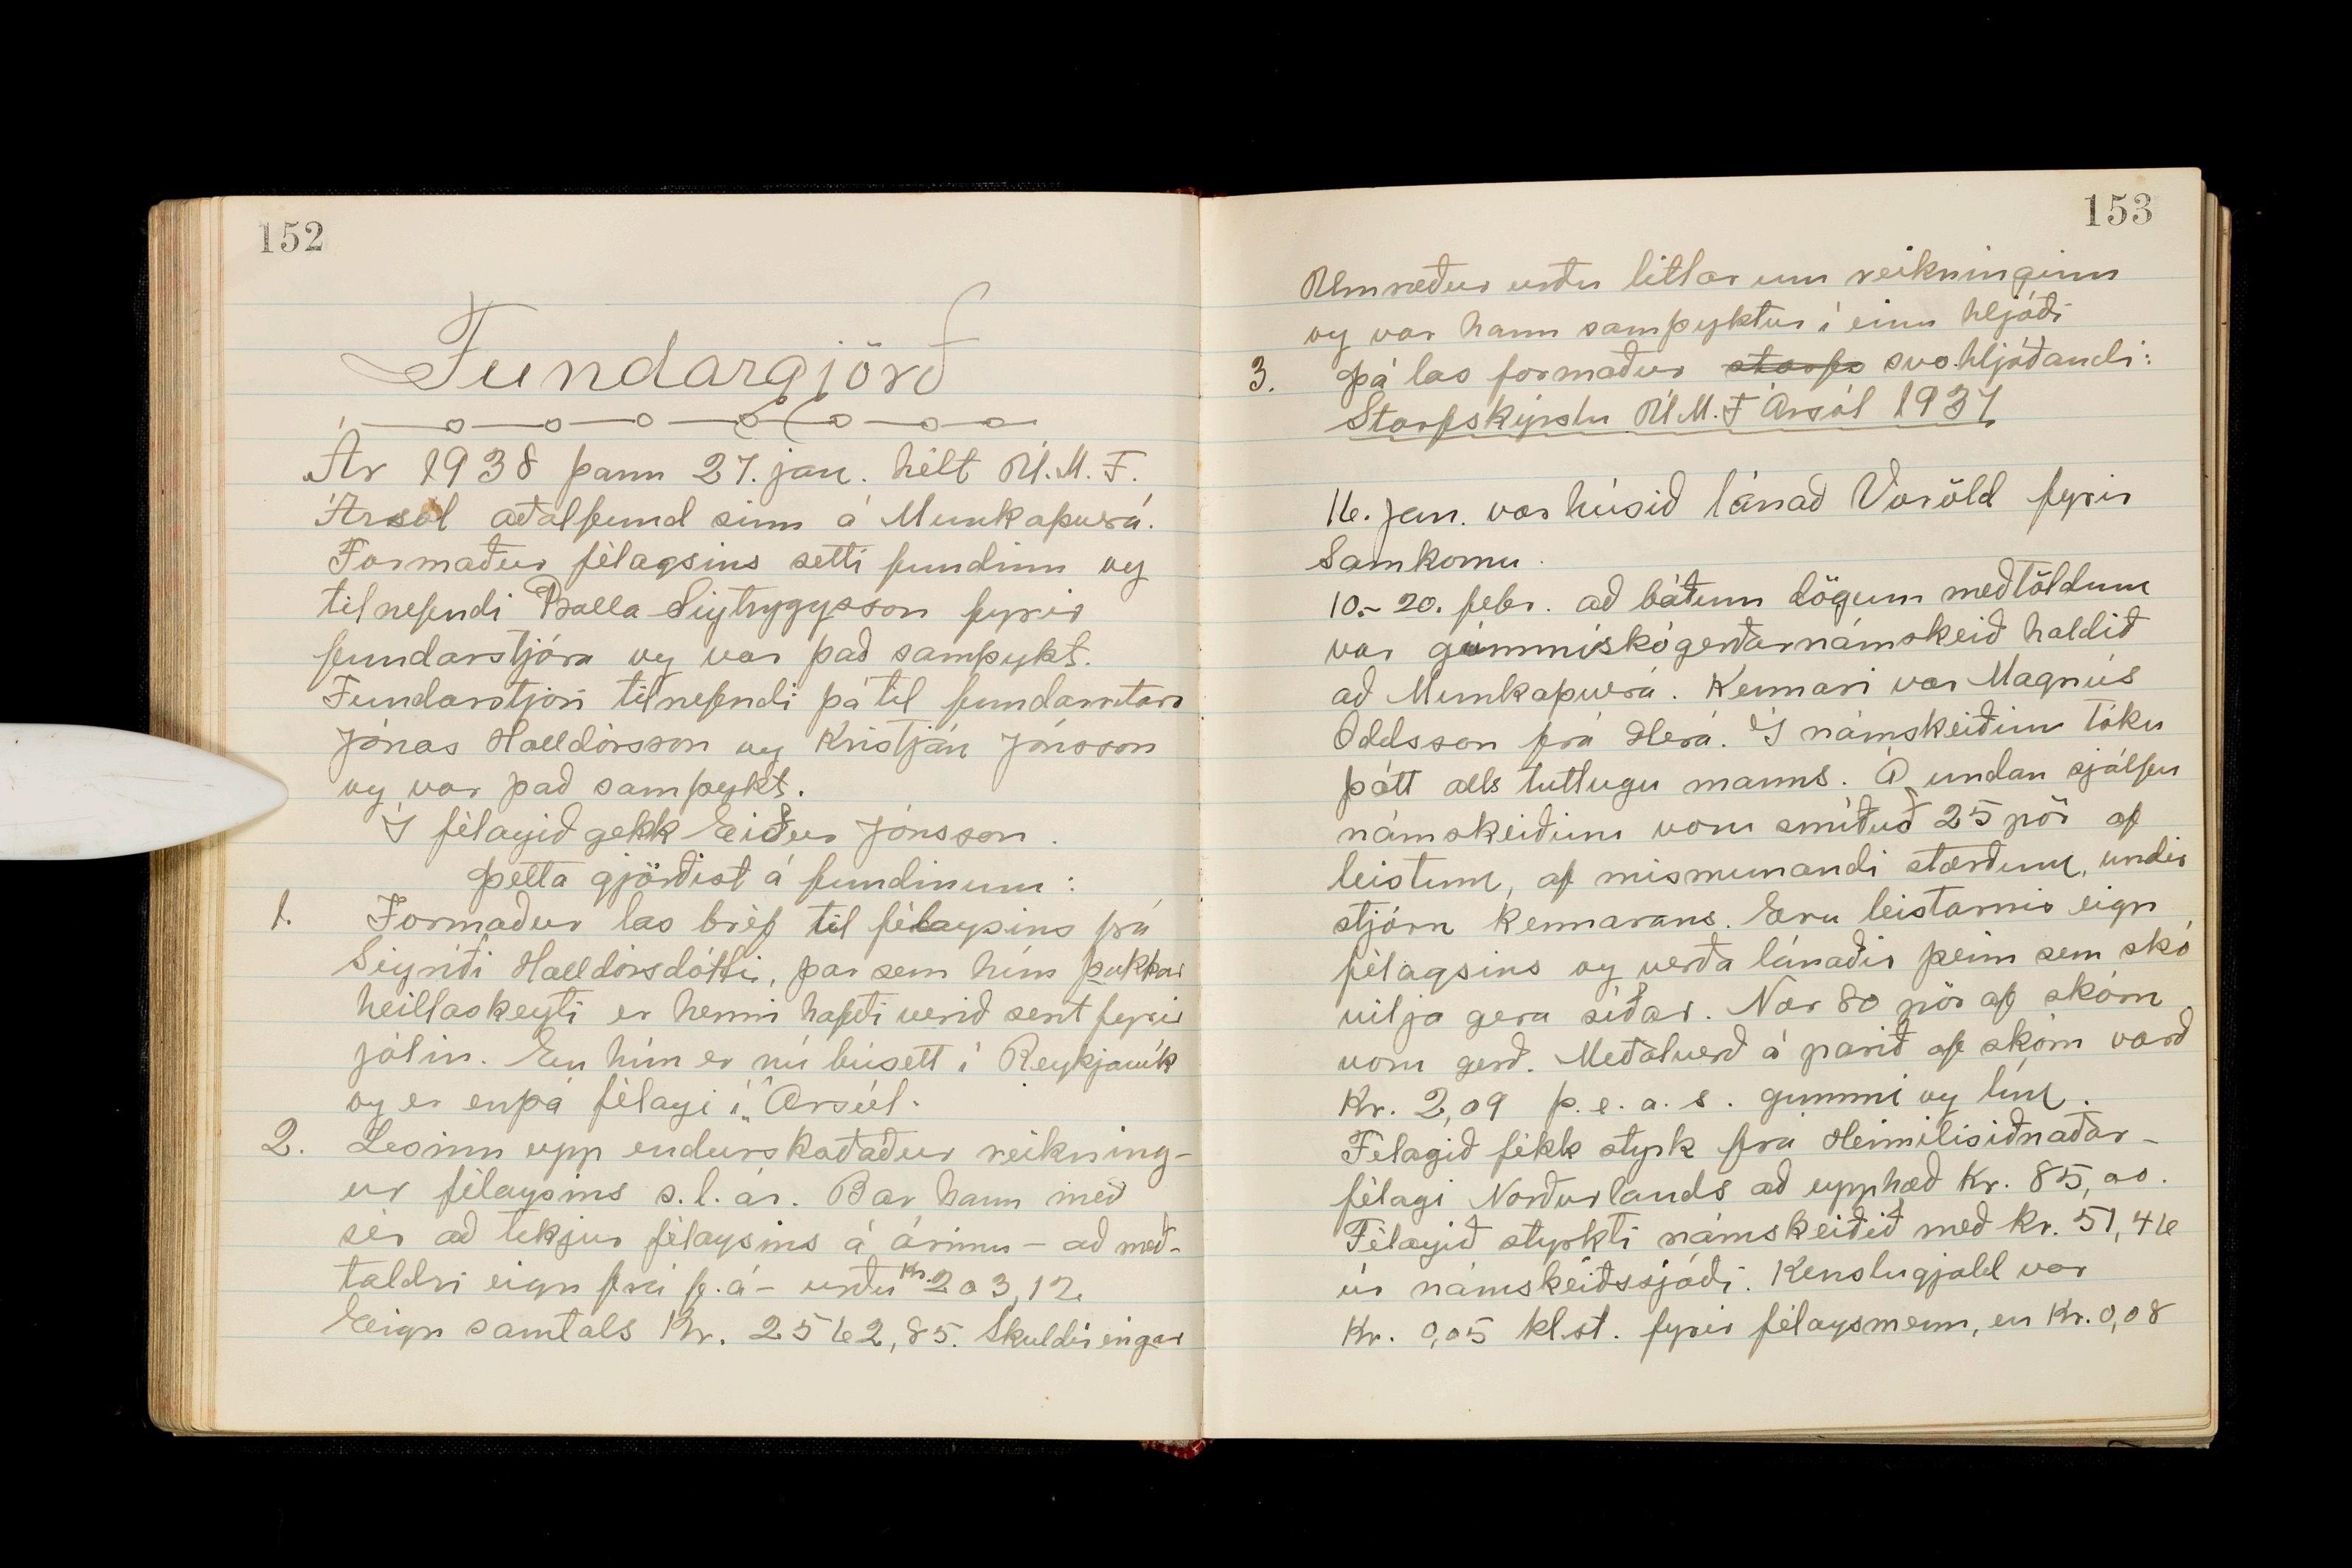 152
Fundargjörð
Ár 1938 þann 27. jan. hélt U.M.F.
Ársól aðalfund sinn á Munkaþverá.
Formaður félagsins setti fundinn og
tilnefndi Balla Sigtryggsson fyrir
fundarstjóra og var það samþykt.
Fundarstjóri tilnefndi þá til fundarritara
Jónas Halldórsson og Kristján Jónsson
og var það samþykt.
Í félagið gekk Eiður Jónsson.
Þetta gjörðist á fundinum:
1. Formaður las bréf til félagsins frá
Sigríði Halldórsdóttir, þar sem hún þakkar
heillaskeyti er henni hafði verið sent fyrir
jólin. En hún er nú búsett í Reykjavík
og er enþá félagi í „Ársól.
2. Lesinn upp endurskoðaður reikning-
ur félagsins s.l. ár. Bar hann með
sér að tekjur félagsins á árinu - að með-
taldri eign frá f.á - urðu Kr. 203,12.
Eign samtals Kr. 2562,85. Skuldir engar
153
Umræður urðu litlar um reikninginn
og var hann samþyktur í einu hljóði
3. Þá las formaður starfs svohljóðandi:
Starfskýrslu U.M.F Ársól 1937
16. jan. var húsið lánað Voröld fyrir
Samkomu.
10.- 20. febr. að báðum dögum meðtöldum
var gúmmískógerðarnámskeið haldið
að Munkaþverá. Kennari var Magnús
Oddsson frá Glerá. Í námskeiðinu tóku
þátt alls tuttugu manns. Á undan sjálfu
námskeiðinu voru smíðuð 25 pör af
leistum, af mismunandi stærðum, undir
stjórn kennarans. Eru leistarnir eign
félagsins og verða lánaðir þeim sem skó
vilja gera síðar. Nær 80 pör af skóm
voru gerð. Meðalverð á parið af skóm varð
Kr. 2,09 þ.e.a.s. gummi og lím.
Félagið fékk styrk frá Heimilisiðnaðar-
félagi Norðurlands að upphæð Kr. 85,00.
Félagið styrkti námskeiðið með kr. 51,46
úr námskeiðssjóði. Kenslugjald var
Kr. 0,05 kl.st. fyrir félagsmenn, en Kr. 0,08